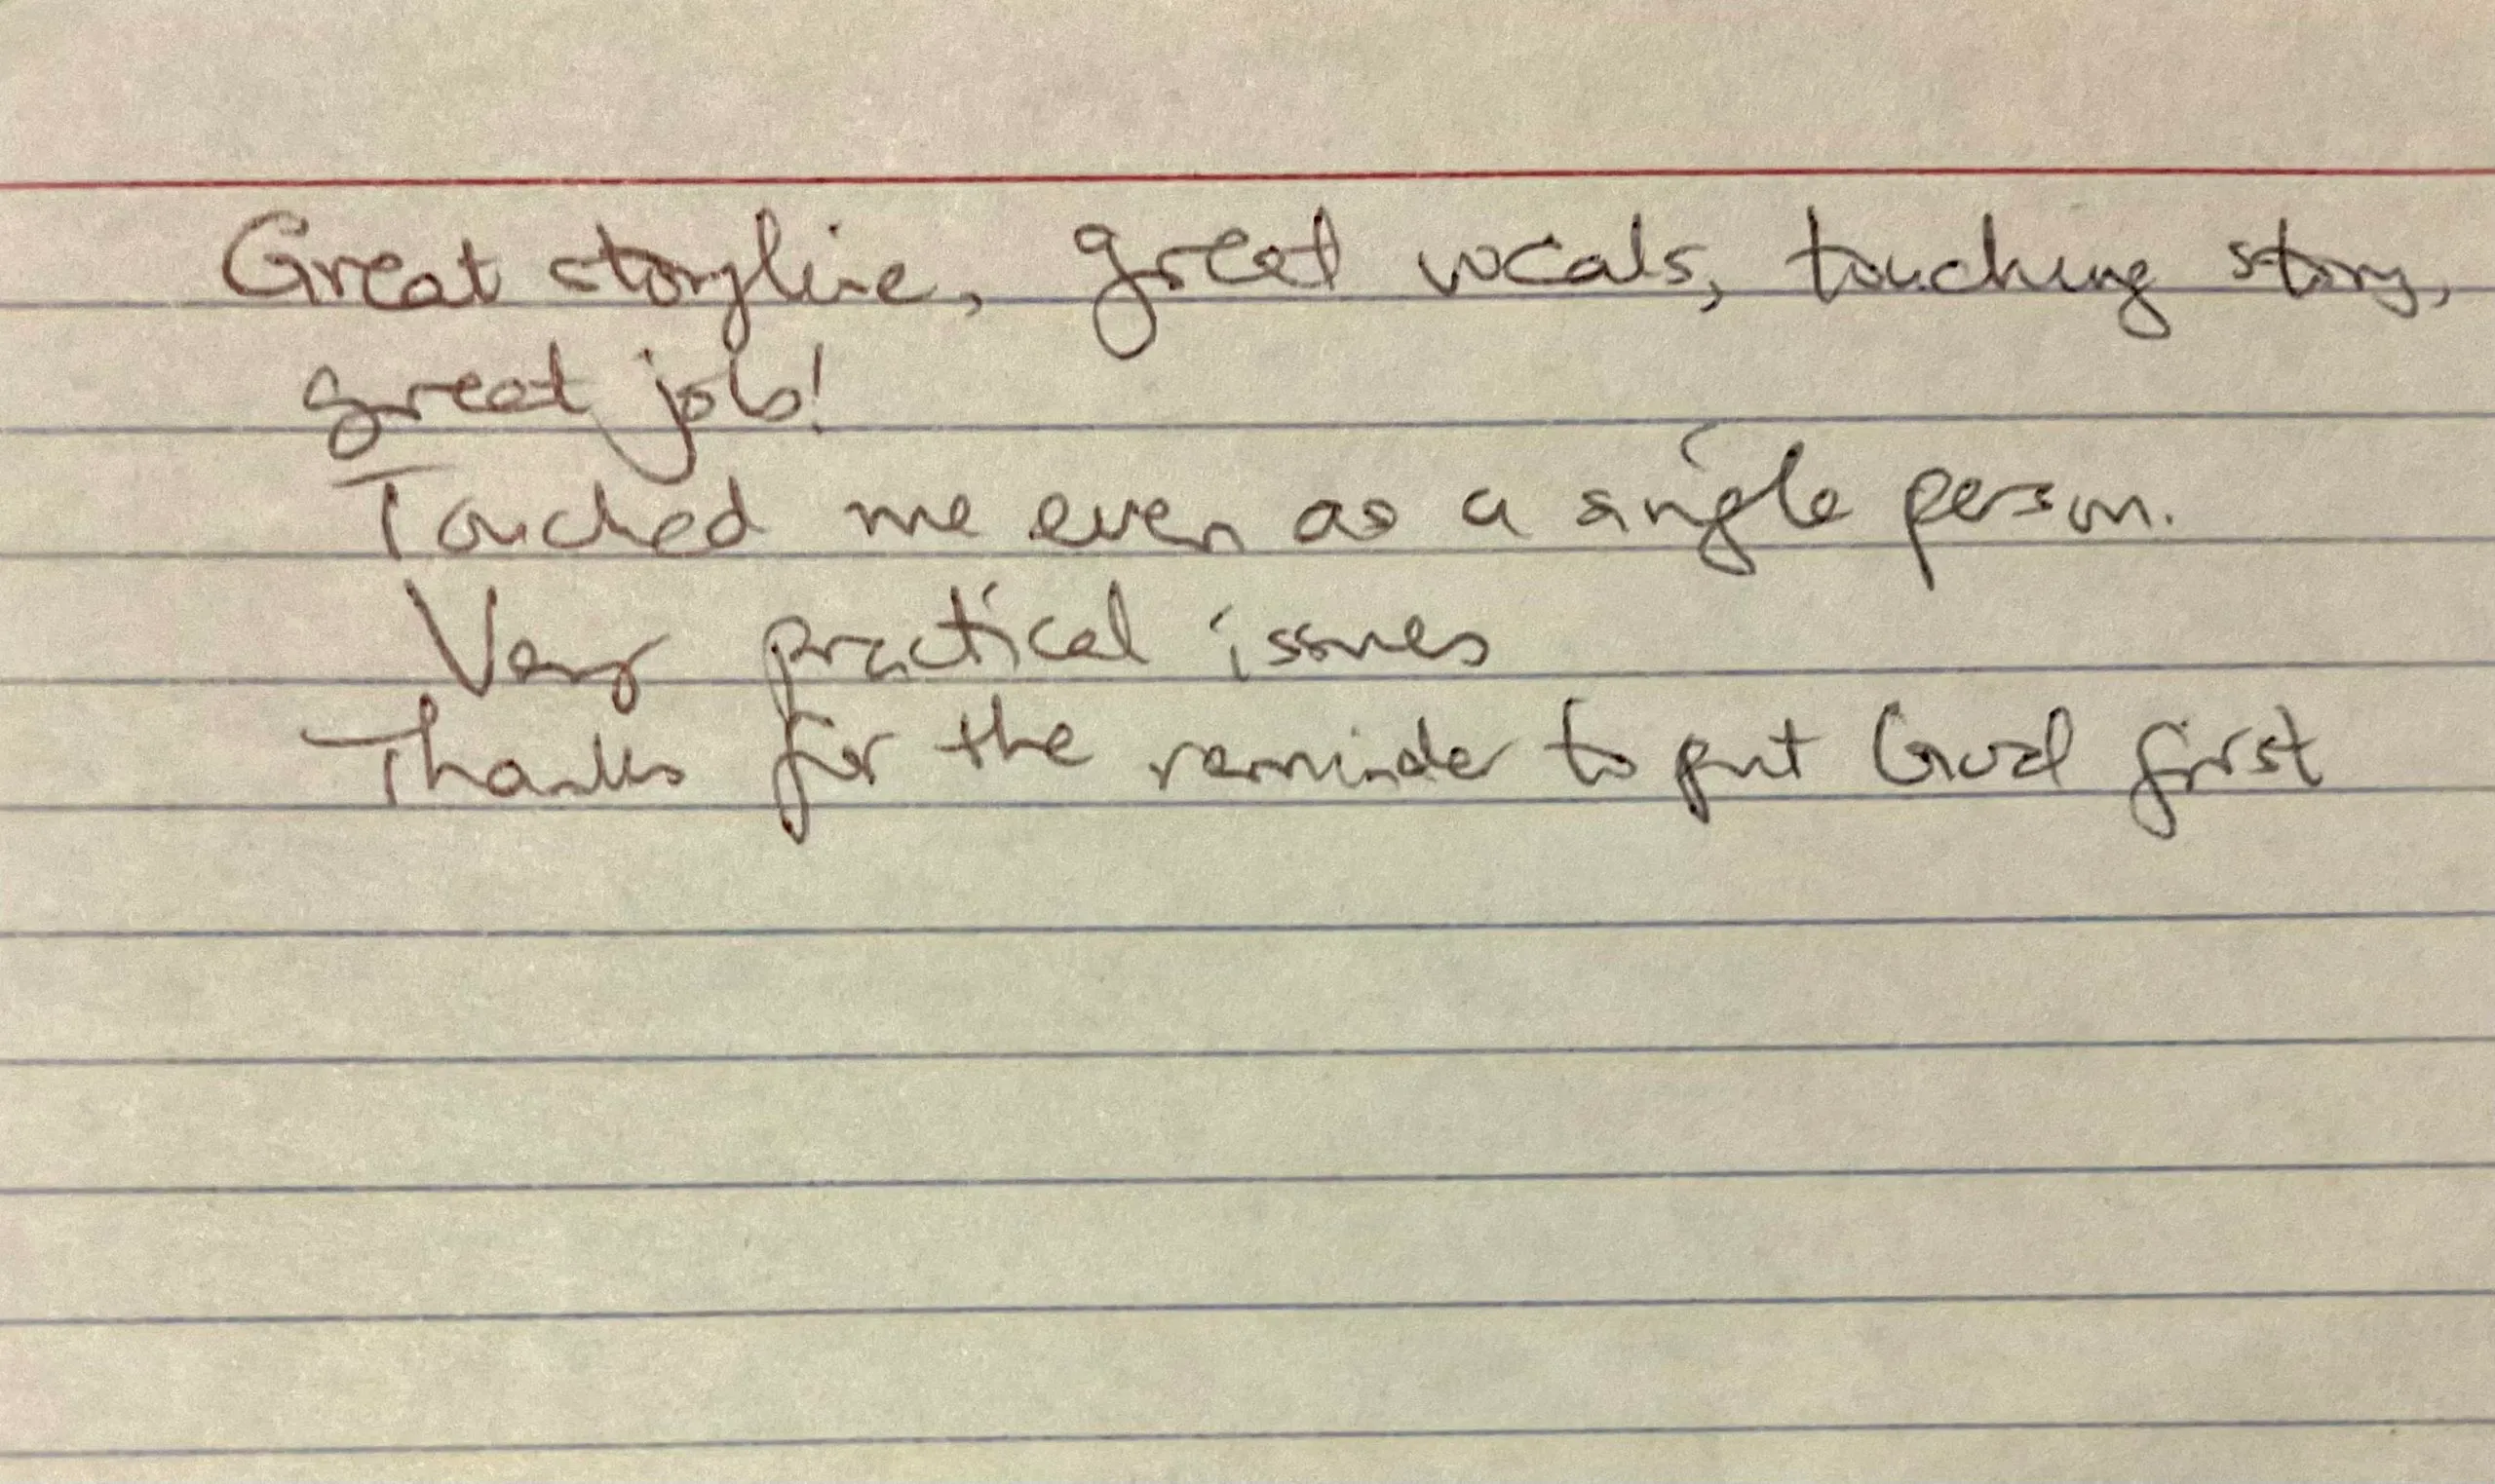 Great storyline, great vocals, touching story,
great job!
Touched me even as a single person.
Very practical issues
Thanks for the reminder to put God first